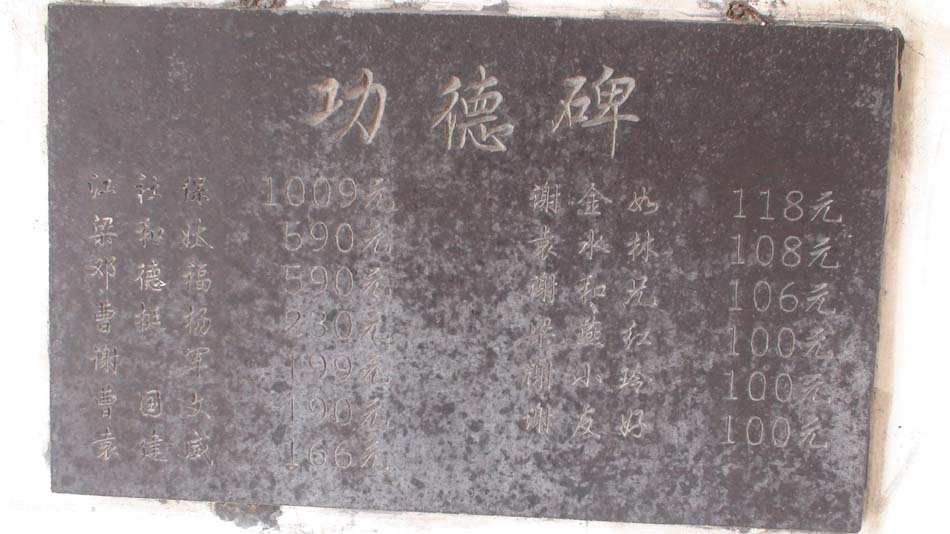 功德碑
江 1009元
梁和 590元
邓德福 590元
曹挺杨 230元
谢军 199元
曹国文 190元
袁建威 166元
谢金如 118元
袁水林 108元
谢和兄 106元
梁燕红 100元
谢小玲 100元
谢友好 100元